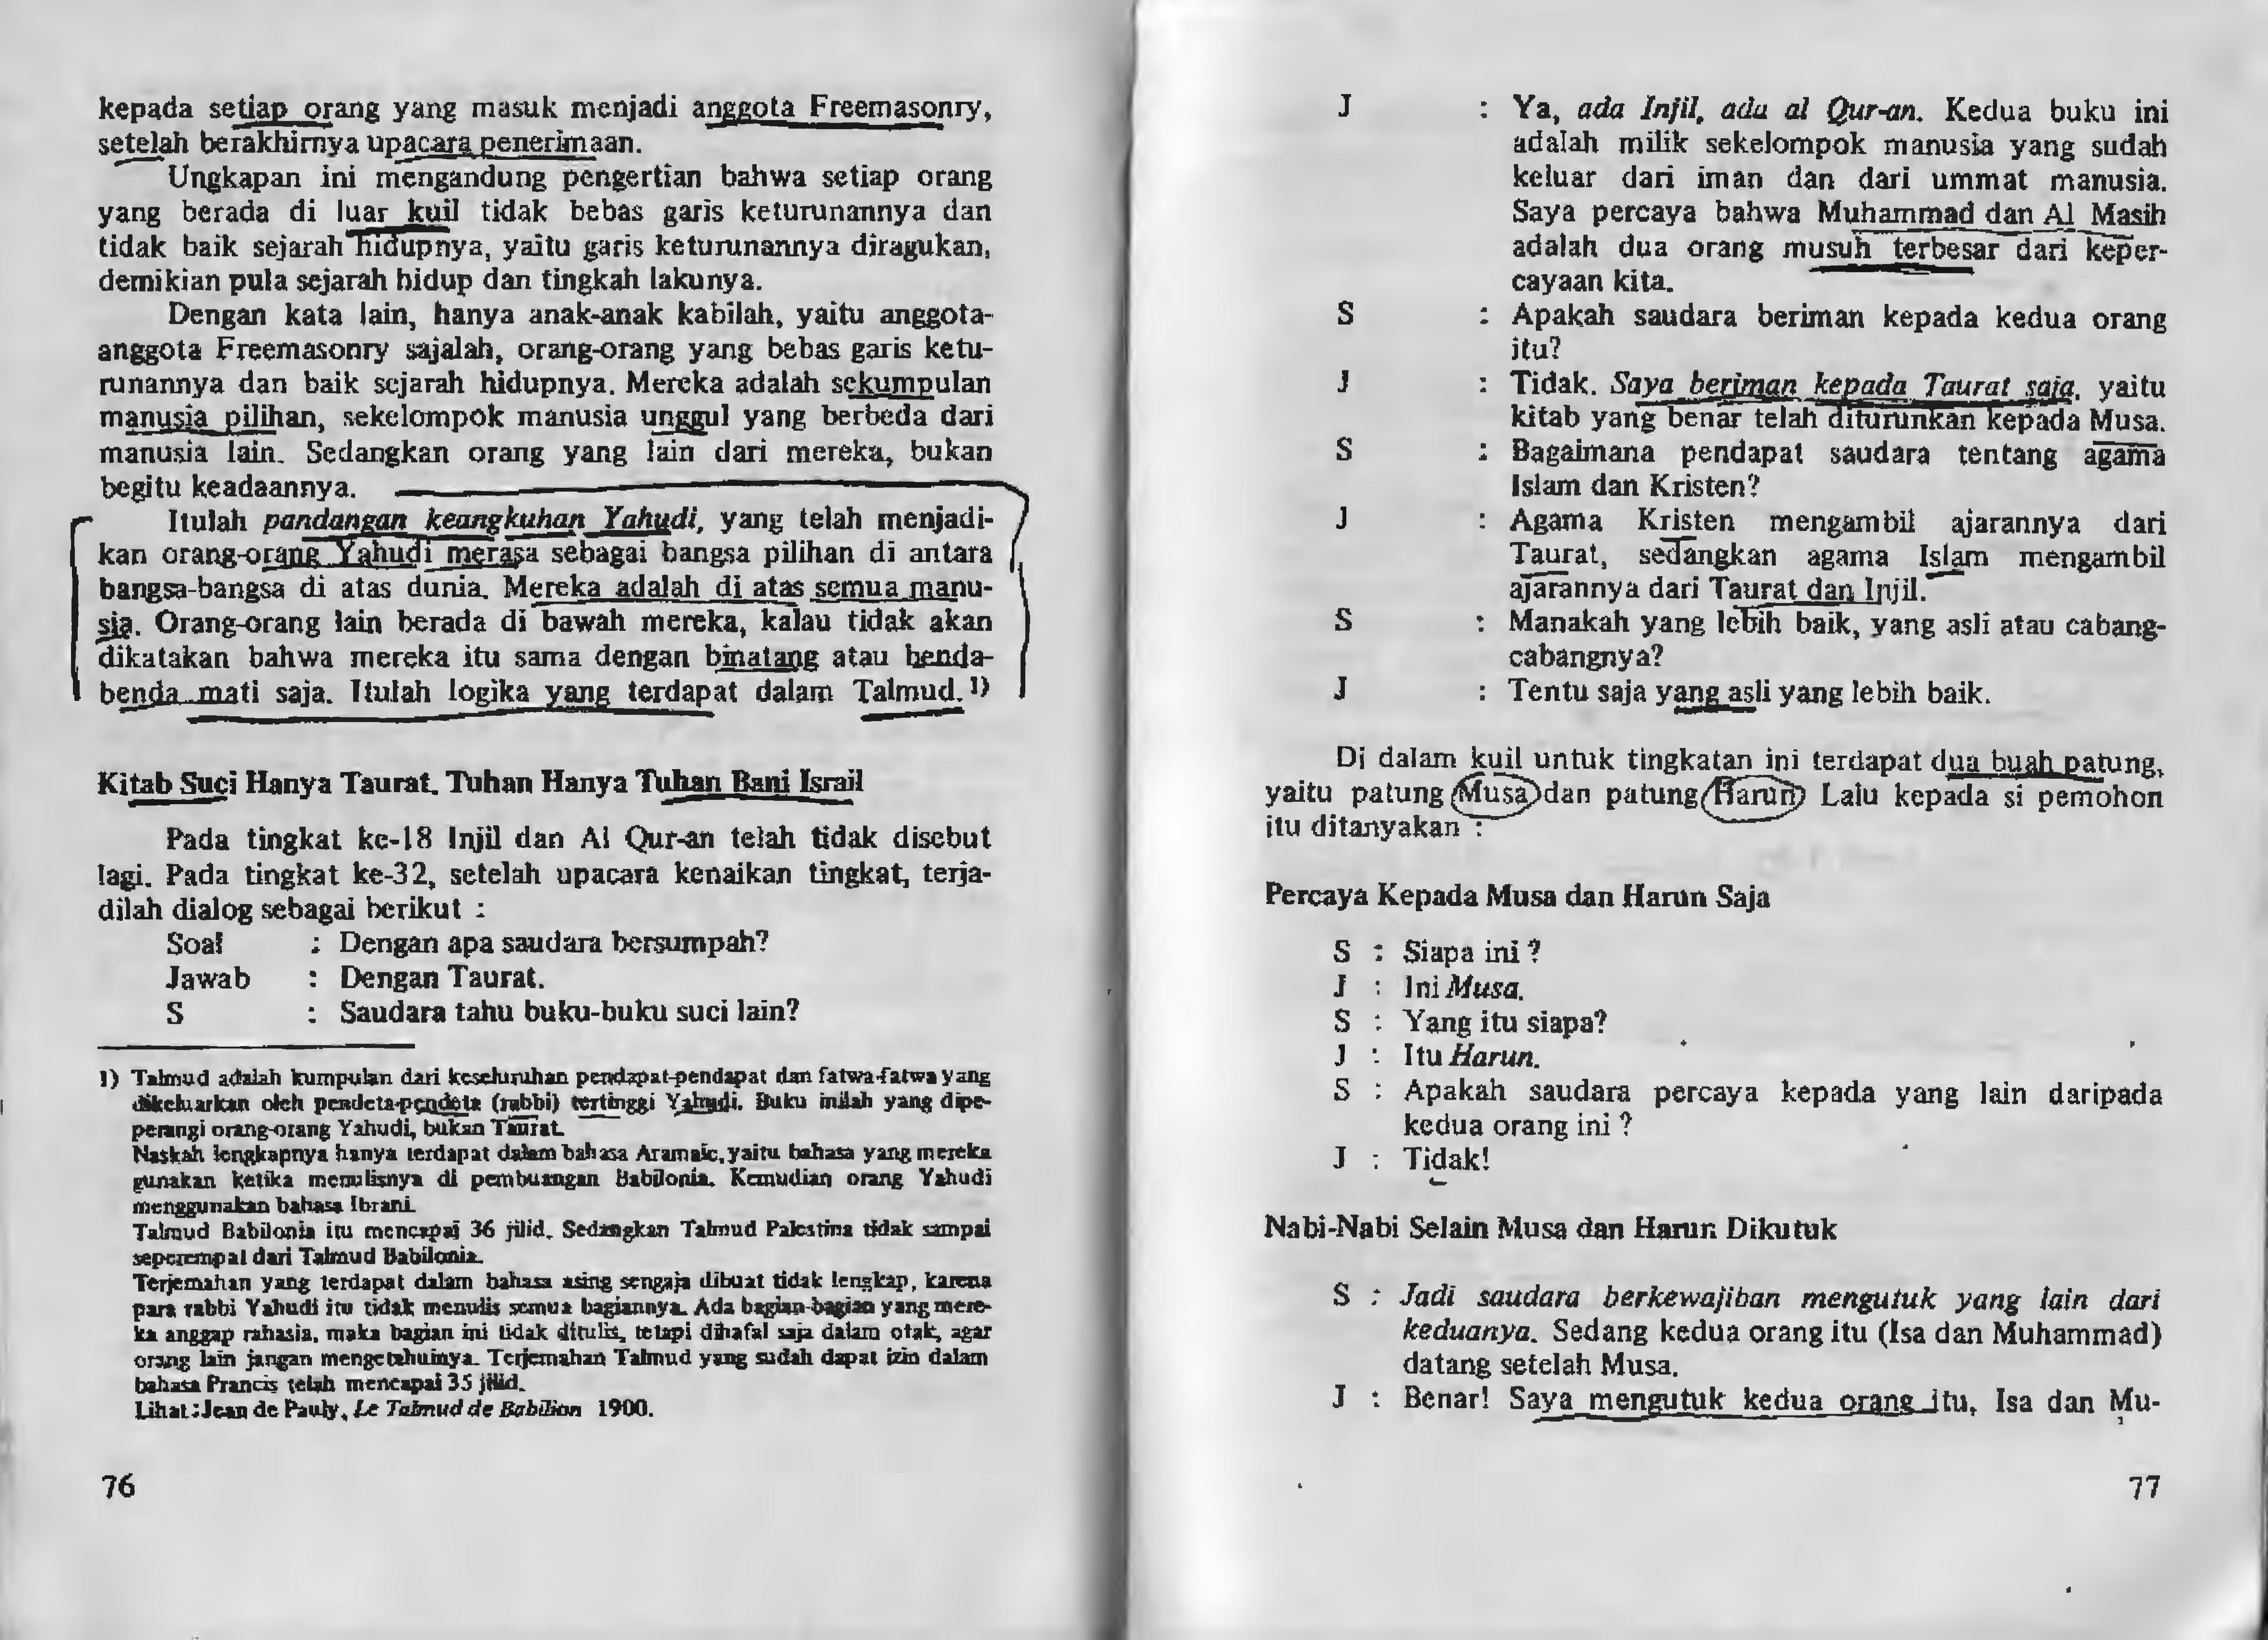 kepada setiap orang yang masuk menjadi anggota Freemasonry,
setelah berakhirnya upacara penerimaan.
Ungkapan ini mengandung pengertian bahwa setiap orang
yang berada di luar kuil tidak bebas garis keturunannya dan
tidak baik sejarah hidupnya, yaitu garis keturunannya diragukan,
demikian pula sejarah hidup dan tingkah lakunya.
Dengan kata lain, hanya anak-anak kabilah, yaitu anggota-
anggota Freemasonry sajalah, orang-orang yang bebas garis ketu-
runannya dan baik sejarah hidupnya. Mereka adalah sekumpulan
manusia pilihan, sekelompok manusia unggul yang berbeda dari
manusia lain. Sedangkan orang yang lain dari mereka, bukan
begitu keadaannya.
Itulah pandangan keangkuhan Yahudi, yang telah menjadi-
kan orang-orang Yahudi merasa sebagai bangsa pilihan di antara
bangsa-bangsa di atas dunia. Mereka adalah di atas semua manu-
sia. Orang-orang lain berada di bawah mereka, kalau tidak akan
dikatakan bahwa mereka itu sama dengan binatang atau benda-
benda mati saja. Itulah logika yang terdapat dalam Talmud.1)
Kitab Suci Hanya Taurat. Tuhan Hanya Tuhan Bani Israil
Pada tingkat ke-18 Injil dan Al Qur-an telah tidak disebut
lagi. Pada tingkat ke-32, setelah upacara kenaikan tingkat, terja-
dilah dialog sebagai berikut :
Soal : Dengan apa saudara bersumpah?
Jawab : Dengan Taurat.
S : Saudara tahu buku-buku suci lain?
1) Talmud adalah kumpulan dari keseluruhan pendapat-pendapat dan fatwa-fatwa yang
dikeluarkan oleh pendeta-pendeta (rabbi) tertinggi Yahudi. Buku inilah yang dipe-
perangi orang-orang Yahudi, bukan Taurat.
Naskah lengkapnya hanya terdapat dalam bahasa Aramaic, yaitu bahasa yang mereka
gunakan ketika menulisnya di pembuangan Babilonia. Kemudian orang Yahudi
menggunakan bahasa Ibrani.
Talmud Babilonia itu mencapai 36 jilid. Sedangkan Talmud Palestina tidak sampai
seperempat dari Talmud Babilonia.
Terjemahan yang terdapat dalam bahasa asing sengaja dibuat tidak lengkap, karena
para rabbi Yahudi itu tidak menulis semua bagiannya. Ada bagian-bagian yang mere-
ka anggap rahasia, maka bagian ini tidak ditulis, tetapi dihafal saja dalam otak, agar
orang lain jangan mengetahuinya. Terjemahan Talmud yang sudah dapat izin dalam
bahasa Prancis telah mencapai 35 jilid.
Lihat : Jean de Pauly, Le Talmud de Babilion 1900.
76
J : Ya, ada Injil, ada al Qur-an. Kedua buku ini
adalah milik sekelompok manusia yang sudah
keluar dari iman dan dari ummat manusia.
Saya percaya bahwa Muhammad dan Al Masih
adalah dua orang musuh terbesar dari keper-
cayaan kita.
S : Apakah saudara beriman kepada kedua orang
itu?
J : Tidak. Saya beriman kepada Taurat saja, yaitu
kitab yang benar telah diturunkan kepada Musa.
S : Bagaimana pendapat saudara tentang agama
Islam dan Kristen?
J : Agama Kristen mengambil ajarannya dari
Taurat, sedangkan agama Islam mengambil
ajarannya dari Taurat dan Injil.
S : Manakah yang lebih baik, yang asli atau cabang-
cabangnya?
J : Tentu saja yang asli yang lebih baik.
Di dalam kuil untuk tingkatan ini terdapat dua buah patung,
yaitu patung Musa dan patung Harun. Lalu kepada si pemohon
itu ditanyakan :
Percaya Kepada Musa dan Harun Saja
S : Siapa ini ?
J : Ini Musa.
S : Yang itu siapa?
J : Itu Harun.
S : Apakah saudara percaya kepada yang lain daripada
kedua orang ini ?
J : Tidak!
Nabi-Nabi Selain Musa dan Harun Dikutuk
S : Jadi saudara berkewajiban mengutuk yang lain dari
keduanya. Sedang kedua orang itu (Isa dan Muhammad)
datang setelah Musa.
J : Benar! Saya mengutuk kedua orang itu, Isa dan Mu-
77